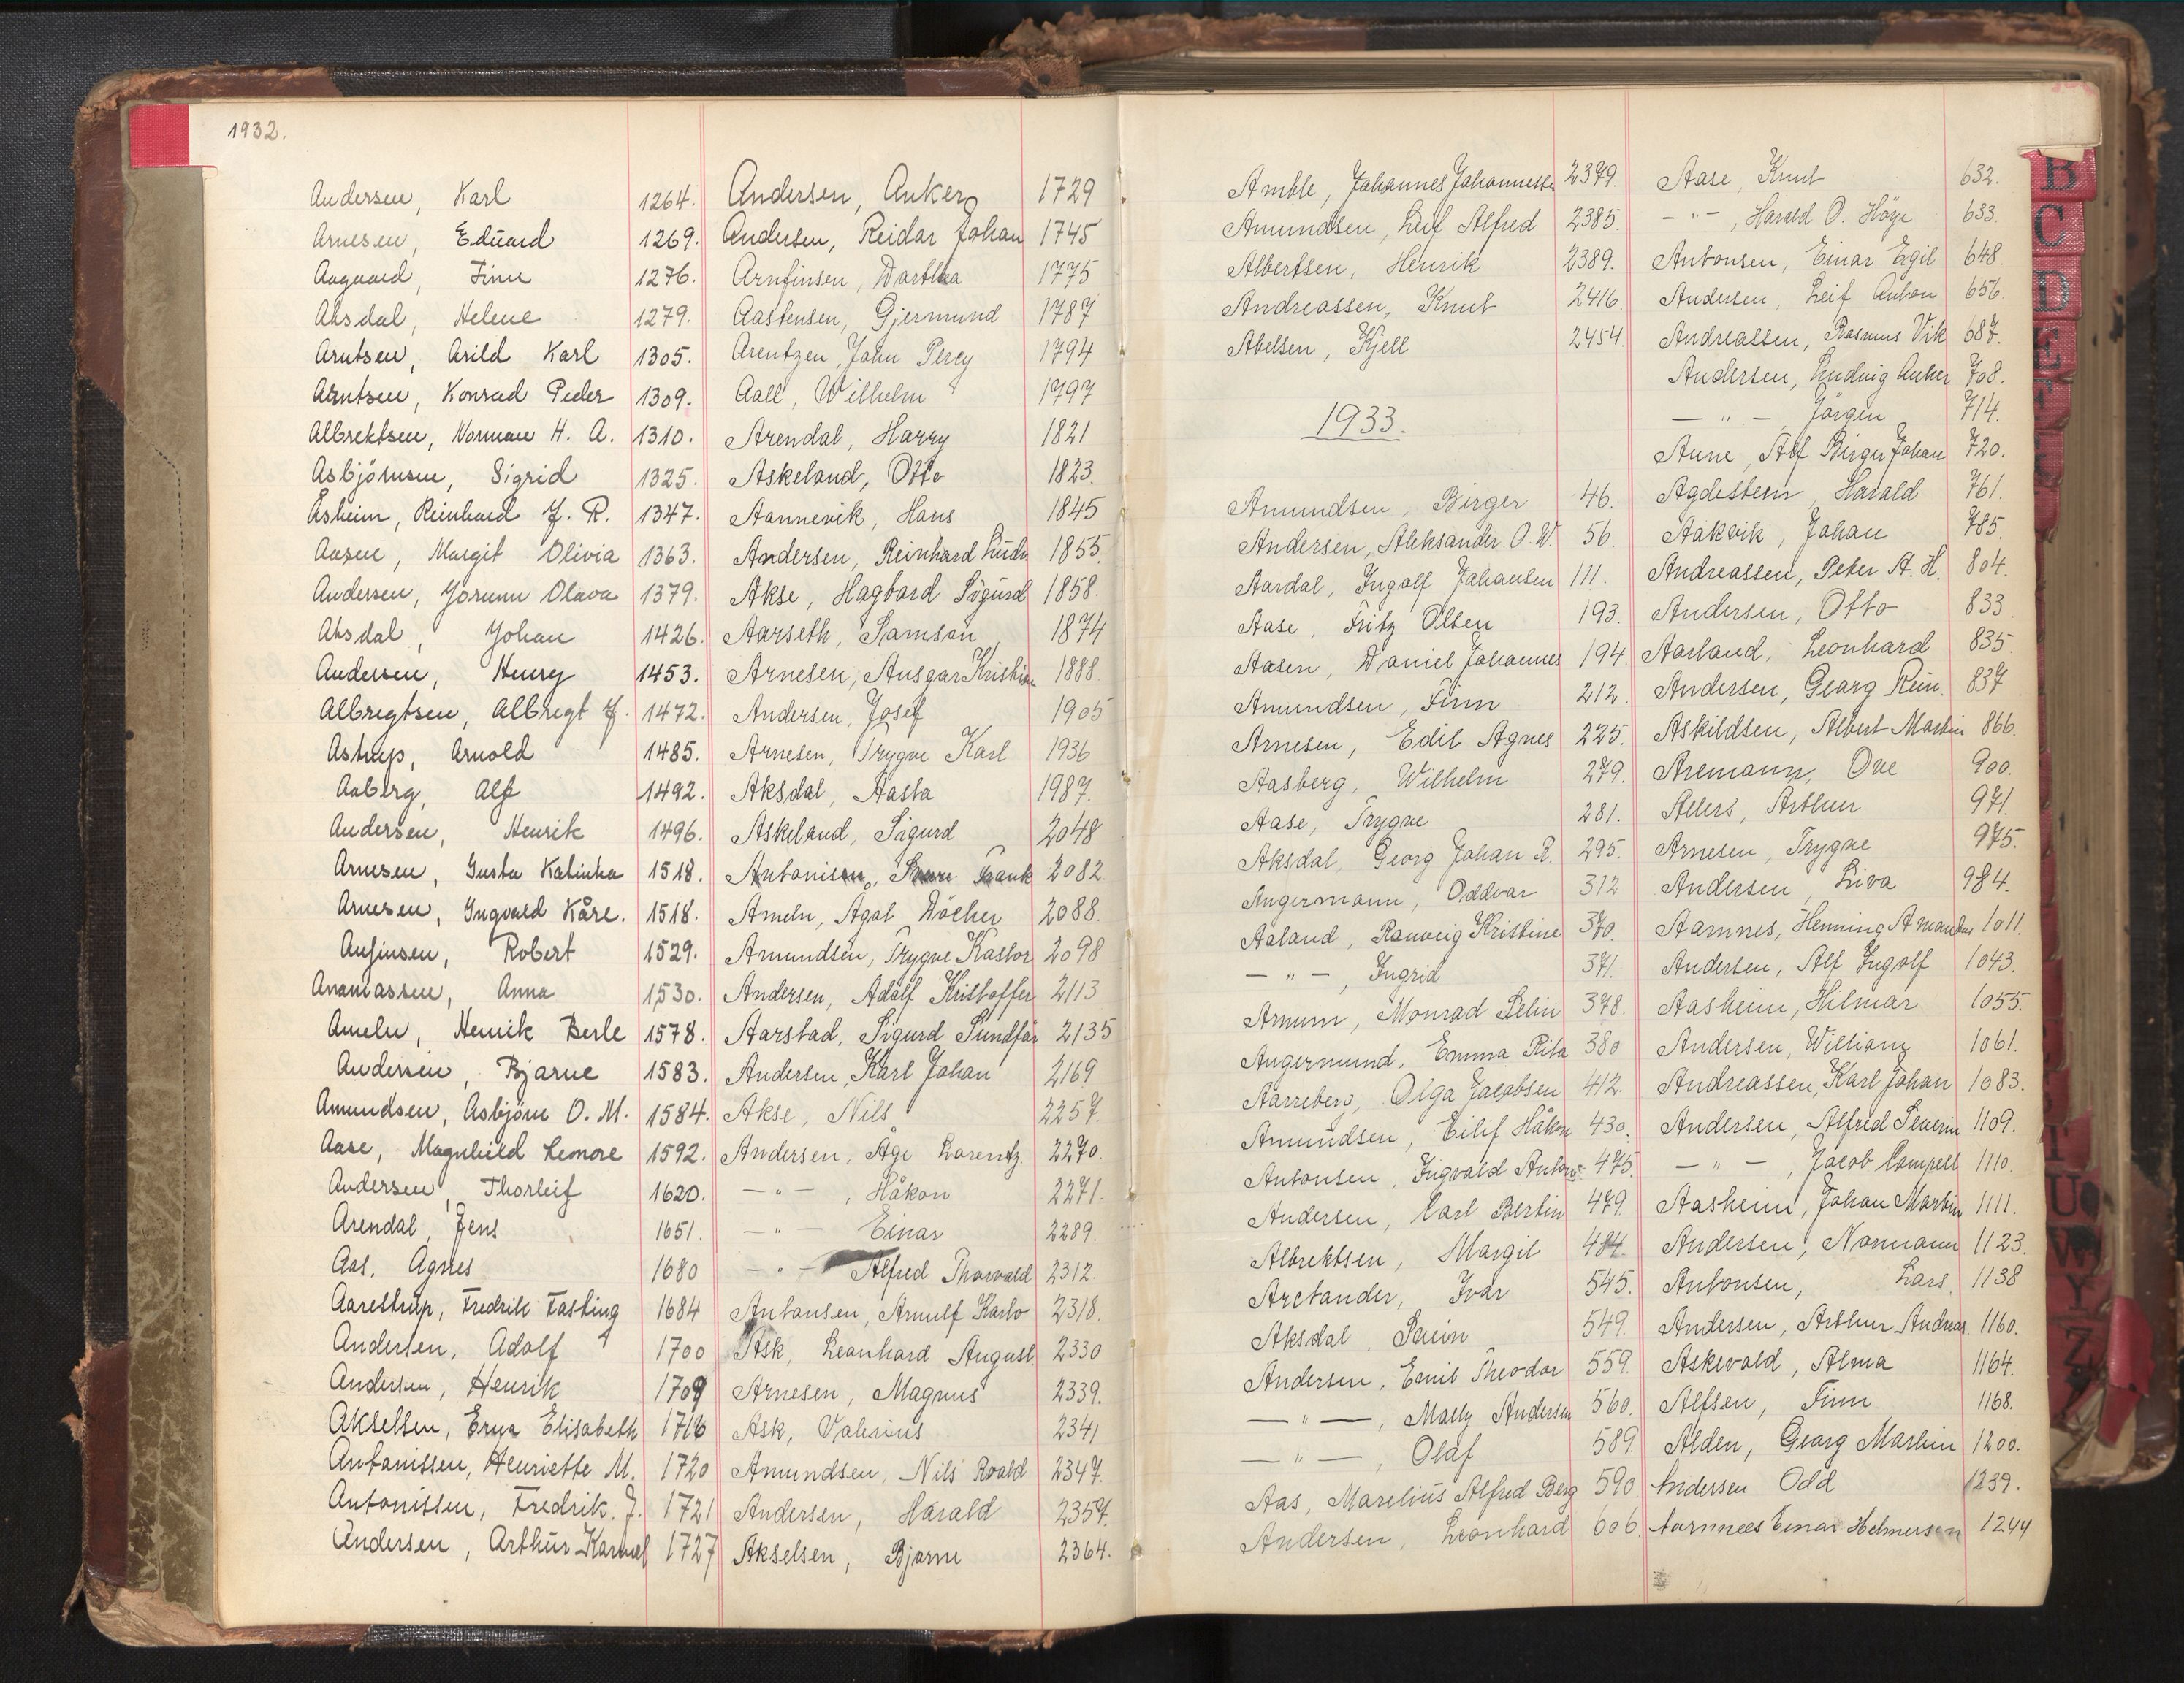 1932.
Andersen, Karl 1264.
Arnesen, Edúard 1269.
Aagaard, Finn 1276.
Aksdal, Helene 1279.
Arntsen, Arild Karl 1305.
Arntsen, Konrad Peder 1309.
Albrektsen, Norman H. A. 1310.
Asbjörnsen, Sigrid 1325.
Åsheim, Reinhard J. R. 1347.
Aasen, Margit Olivia 1363.
Andersen, Jorunn Olava 1379.
Aksdal, Johan 1426.
Andersen, Henry 1453.
Albregtsen, Albregt J. 1472.
Astrup, Arnold 1485.
Aaberg, Alf 1492.
Andersen, Henrik 1496.
Arnesen, Gusta Katinka 1518.
Arnesen, Ingvald Kåre. 1518.
Anfinsen, Robert 1529.
Ananiassen, Anna 1530.
Ameln, Henrik Berle 1578.
Andersen, Bjarne 1583.
Amundsen, Asbjörn O. M. 1584.
Aase, Magnhild Lenore 1592.
Andersen, Thorleif 1620.
Arendal, Jens 1651.
Aas, Agnes 1680
Aarestrup, Fredrik Fasting 1684
Andersen, Adolf 1700
Andersen, Henrik 1709
Akselsen, Erna Elisabeth 1716
Antonissen, Henriette M. 1720
Antonissen, Fredrik. J. 1721
Andersen, Arthúr Karmel 1727
Andersen, Anker 1729
Andersen, Reidar Johan 1745
Arnfinsen, Dorthea 1775
Aastensen, Gjermund 1787
Arentzen, John Percy 1794
Aall, Wilhelm 1797
Arendal, Harry 1821
Askeland, Otto 1823.
Aannevik, Hans 1845
Andersen, Reinhard Lúdv 1855.
Akse, Hagbard Sigúrd 1858.
Aarseth, Samson 1874
Arnesen, Ansgar Kristian 1888.
Andersen, Josef 1905
Arnesen, Trygve Karl 1936
Aksdal, Aasta 1987.
Askeland, Sigurd 2048
Antonisen, Frank 2082
Ameln, Agat Döcker 2088.
Amundsen, Trygve Kastor 2098
Andersen, Adolf Kristoffer 2113
Aarstad, Sigurd Sundfør 2135
Andersen, Karl Johan 2169
Akse, Nils 2257.
Andersen, Åge Lorentz 2270.
— " —, Håkon 2271.
— " — Einar 2289.
— " — Alfred Thorvald 2312.
Antonsen, Arnulf Karlo 2318.
Ask, Leonhard August 2330
Arnesen, Magnus 2339.
Ask, Valerius 2341
Amundsen, Nils Roald 2347.
Andersen, Harald 2357.
Akselsen, Bjarne 2364.
Amble, Johannes Johannessen 2379.
Amundsen, Leif Alfred 2385.
Albertsen, Henrik 2389.
Andreassen, Knut 2416.
Abelsen, Kjell 2454.
1933.
Amundsen, Birger 46.
Andersen, Aleksander O. W. 56.
Aardal, Ingolf Johansen 111.
Aase, Fritz Olsen 193.
Aasen, Daniel Johannes 194.
Amundsen, Finn 212.
Arnesen, Edit Agnes 225.
Aasberg, Wilhelm 279.
Aase, Trygve 281.
Aksdal, Georg Johan R. 295.
Angermann, Oddvar 312
Aaland, Ranveig Kristine 370.
— " —, Ingrid 371.
Arnum, Monrad Selin 378.
Angermund, Emma Rita 380
Aarreberg, Olga Jacobsen 412.
Amundsen, Eilif Håkon 430.
Antonsen, Ingvald Anton 475
Andersen, Carl Bertin 479.
Albrektsen, Margit 484
Arctander, Ivar 545.
Aksdal, Svein 549.
Andersen, Emil Theodor 559.
— " —, Mally Andersen 560.
— " —, Olaf 589.
Aas, Marelius Alfred Berg 590
Andersen, Leonhard 606.
Aase, Knut 632.
— " —, Harald O. Höye 633.
Antonsen, Einar Egil 648.
Andersen, Leif Anton 656.
Andreassen, Rasmus Vik 687.
Andersen, Ludvig Anker 708.
— " — Jörgen 714.
Aune, Alf Birger Johan 720.
Agdestein, Harald 761.
Aakvik, Johan 785.
Andreassen, Peter A. H. 804.
Andersen, Otto 833.
Aarland, Leonhard 835.
Andersen, Georg Rein. 837
Askildsen, Albert Martin 866.
Aremann, Ove 900.
Allers, Arthur 971.
Arnesen, Trygve 975.
Andersen, Liva 984.
Aamnes, Henning Amandus 1011.
Andersen, Alf Ingolf 1043.
Aasheim, Hilmar 1055.
Andersen, William 1061.
Andreassen, Karl Johan 1083.
Andersen, Alfred Severin 1109.
— " —, Jacob Campell 1110.
Aasheim, Johan Martin 1111.
Andersen, Normann 1123.
Antonsen, Lars 1138
Andersen, Arthur Andreas. 1160.
Askevold, Alma 1164.
Alfsen, Finn 1168.
Alden, Georg Martin 1200.
Andersen Odd 1239.
Aarnnees Einar Helmersen 1244
B
C
D
E
F
T
U
W
Y
Z